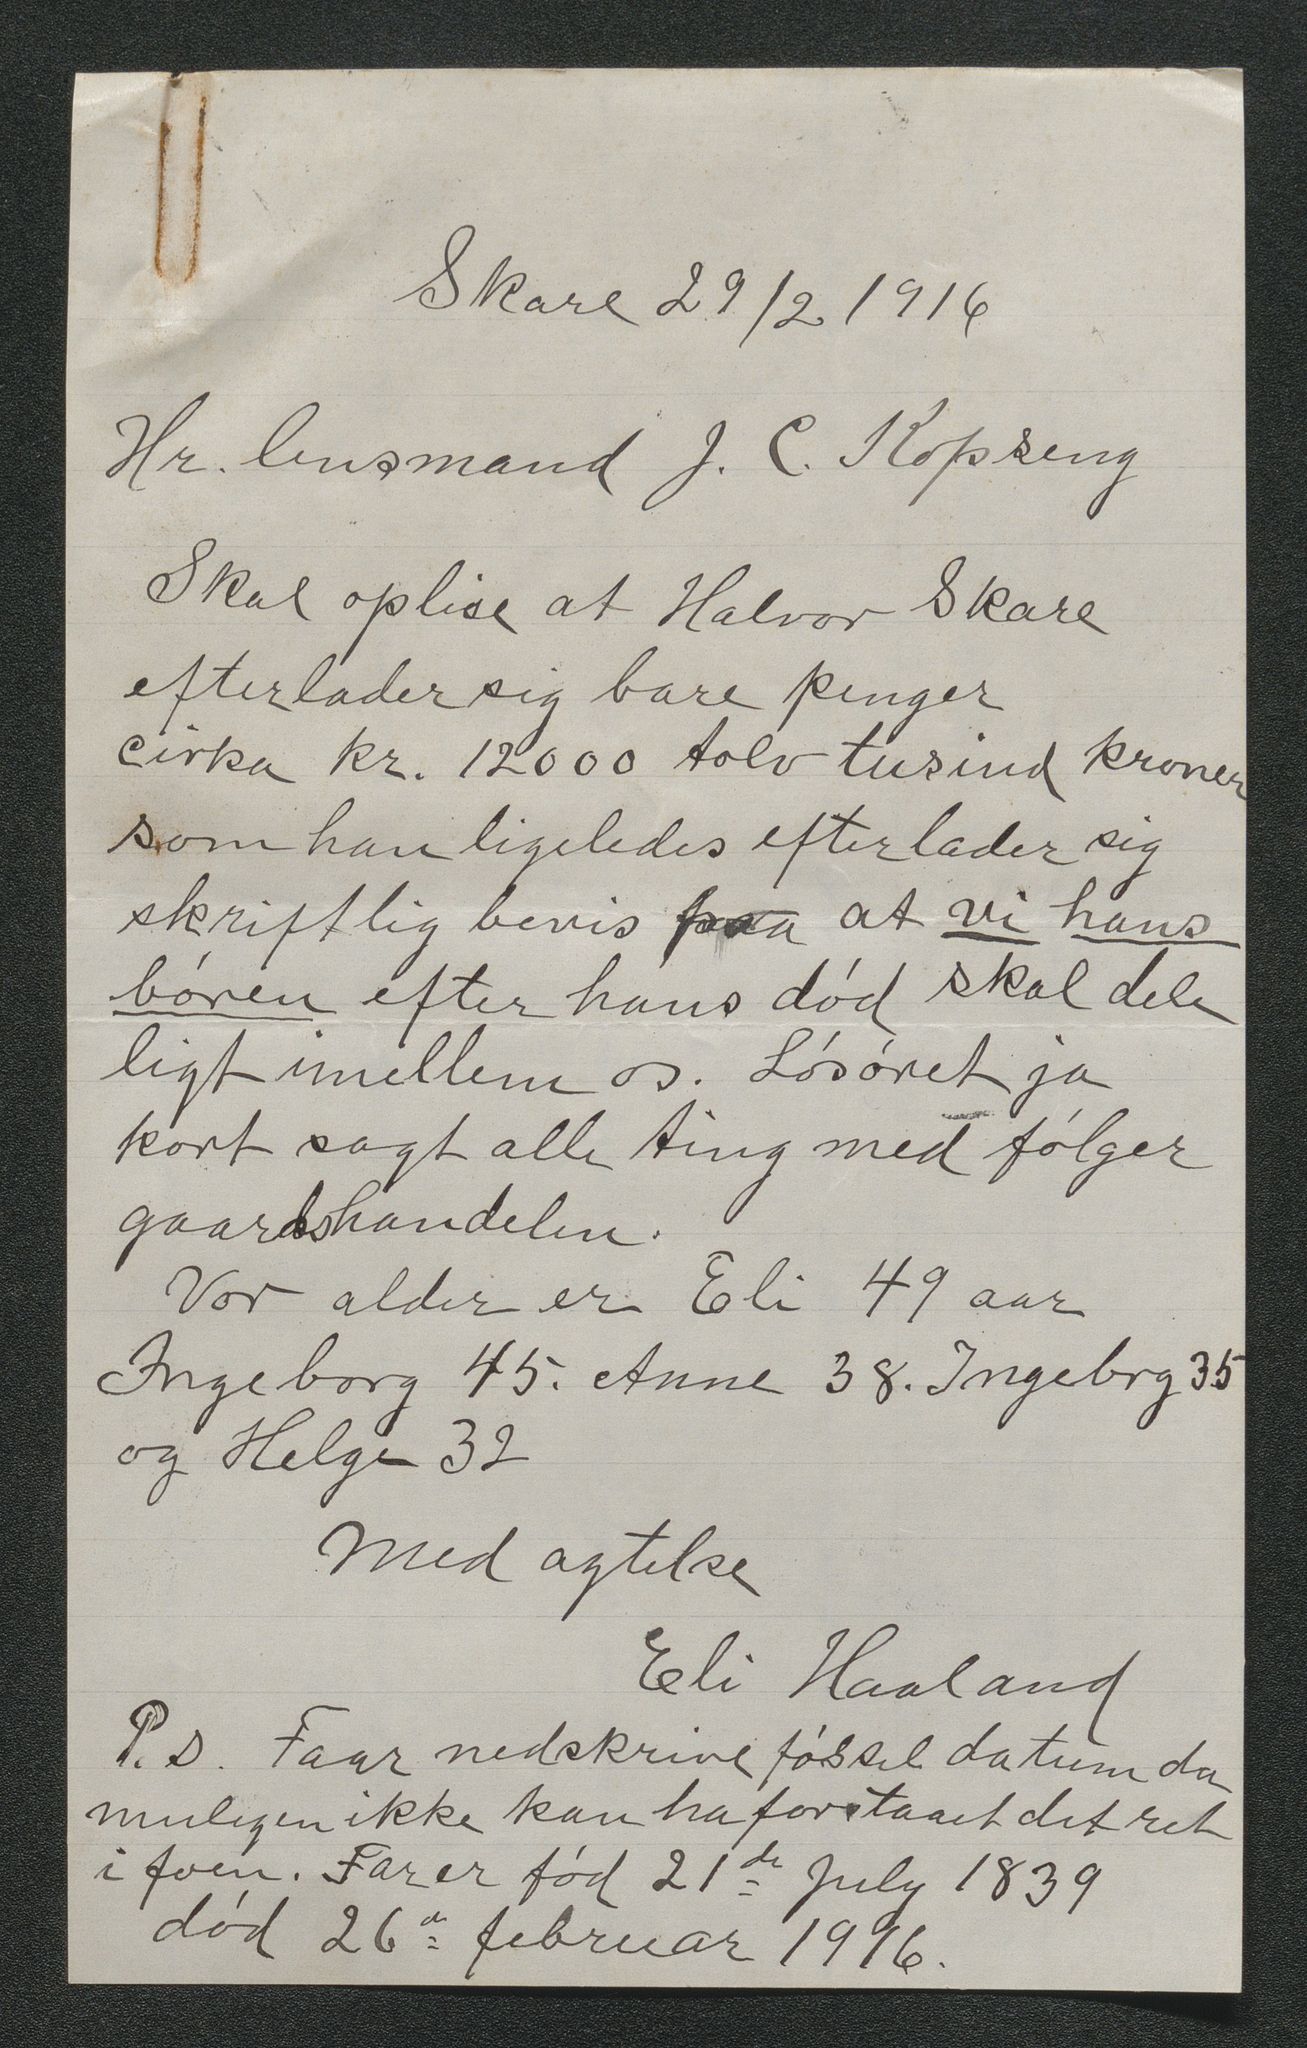 Skare 29/2 1916
Hr. lensmand J. C. Kopseng
Skal oplise at Halvor Skare
efterlader sig bare penger
cirka kr. 12000 tolv tusind kroner
som han ligeledes efterlader sig
skriftlig bevis paa at vi hans
bören efter hans död skal dele
ligt imellem os. Lösöret ja
kort sagt alle ting med fölger
gaardshandelen.
Vor alder er Eli 49 aar
Ingeborg 45. Anne 38. Ingebrg 35
og Helge 32
Med agtelse
Eli Haaland
P.s. Faar nedskrive fössel datum da
muligen ikke kan ha forstaaet det ret
i foen. Far er föd 21de July 1839
död 26de februar 1916.